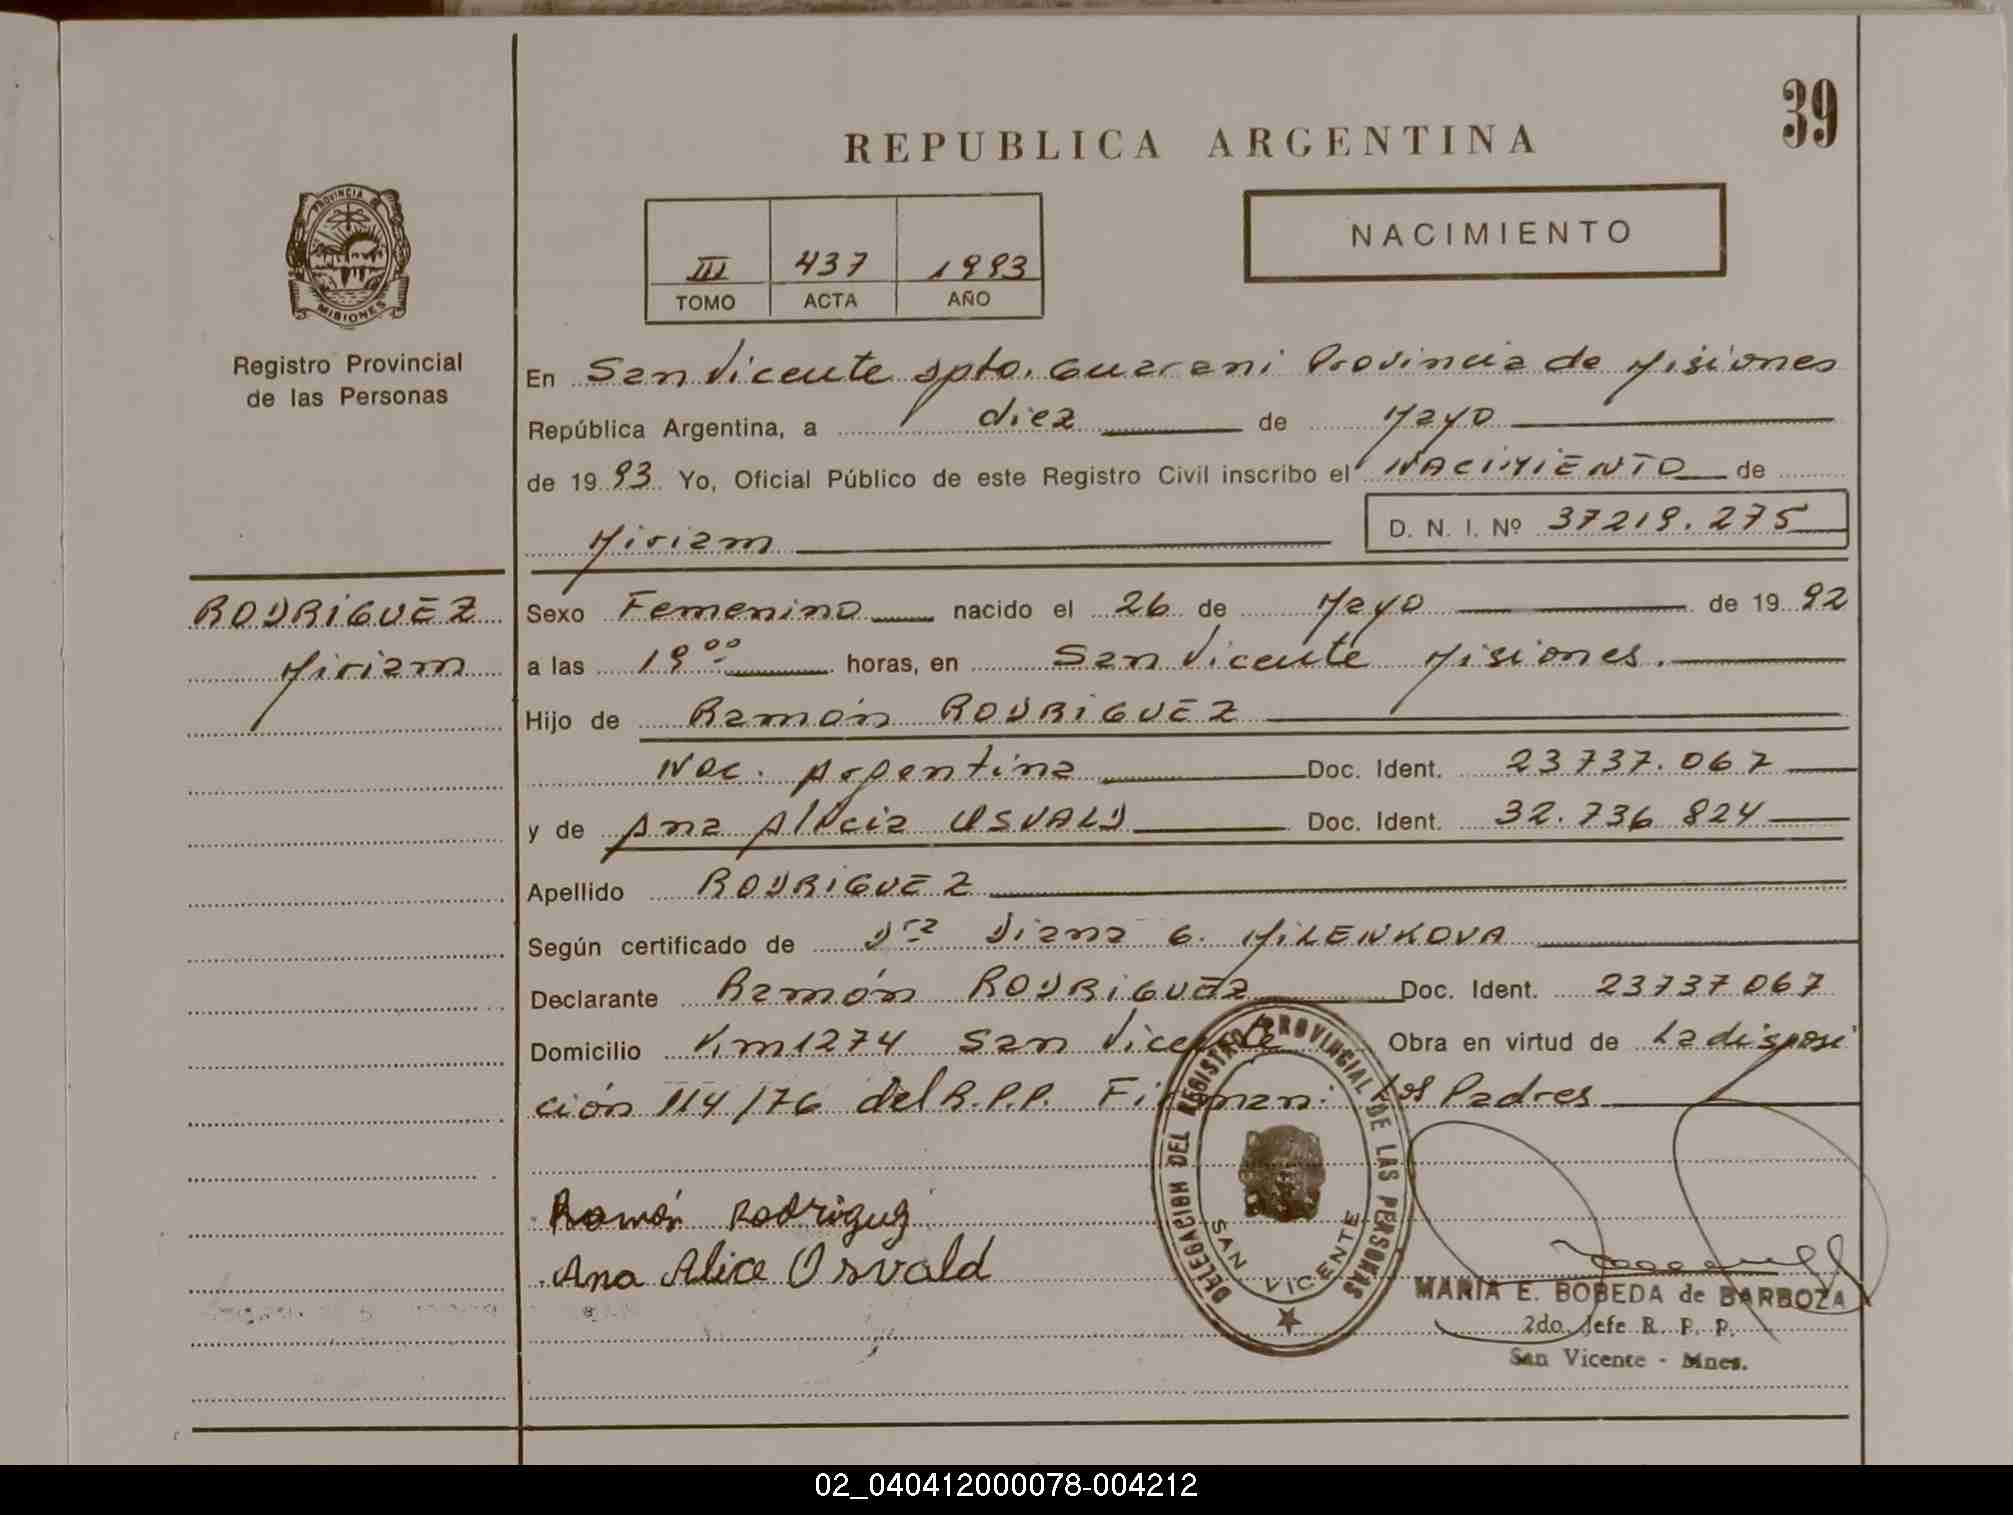 39
REPUBLICA ARGENTINA
PROVINCIA DE
MISIONES
NACIMIENTO
III 437 1993
TOMO ACTA AÑO
Registro Provincial
de las Personas
En San Vicente Dpto. Guarani Provincia de Misiones
República Argentina, a diez de Mayo
de 1993 Yo, Oficial Público de este Registro Civil inscribo el NACIMIENTO de
Miriam D. N. I. Nº 37219.275
RODRIGUEZ
Miriam
Sexo Femenino nacido el 26 de Mayo de 1992
a las 19 00 horas, en San Vicente Misiones.
Hijo de Ramón RODRIGUEZ
Nac. Argentina Doc. Ident. 23737.067
y de Ana Alicia OSVALD Doc. Ident. 32.736 824
Apellido RODRIGUEZ
Según certificado de Dra Diana G. MILENKOVA
Declarante Ramón RODRIGUEZ Doc. Ident. 23737067
Domicilio Km1274 San Vicente Obra en virtud de La disposi
ción 114/76 del R.P.P. Firman: los Padres
Ramón Rodriguez
Ana Alice Osvald
DELEGACION DEL REGISTRO PROVINCIAL DE LAS PERSONAS
SAN VICENTE
MARIA E. BOBEDA de BARBOZA
2do. Jefe R. P. P.
San Vicente - Mnes.
02_040412000078-004212